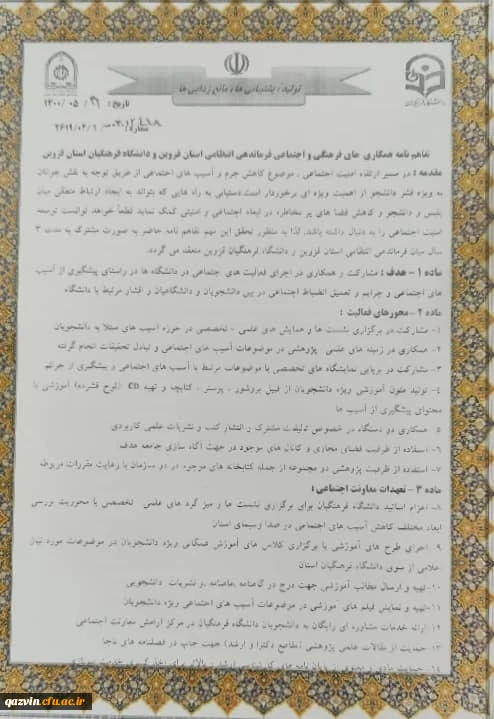 تولید؛ پشتیبانی ها، مانع زدایی ها
تاریخ : ۳۱/ ۰۵/ ۱۴۰۰
شماره: ۲۶۱۹/۰۲/۱
تفاهم نامه همکاری های فرهنگی و اجتماعی فرماندهی انتظامی استان قزوین و دانشگاه فرهنگیان استان قزوین
مقدمه : در مسیر ارتقاء امنیت اجتماعی ، موضوع کاهش جرم و آسیب های اجتماعی از طریق توجه به نقش جوانان
به ویژه قشر دانشجو از اهمیت ویژه ای برخوردار است.دستیابی به راه هایی که بتواند به ایجاد ارتباط منطقی میان
پلیس و دانشجو و کاهش فضا های پر مخاطره در ابعاد اجتماعی و امنیتی کمک نماید قطعاً خواهد توانست توسعه
امنیت اجتماعی را به دنبال داشته باشد. لذا به منظور تحقق این مهم تفاهم نامه حاضر به صورت مشترک به مدت ۳
سال میان فرماندهی انتظامی استان قزوین و دانشگاه فرهنگیان قزوین منعقد می گردد.
ماده ۱ – هدف : مشارکت و همکاری در اجرای فعالیت های اجتماعی در دانشگاه ها در راستای پیشگیری از آسیب
های اجتماعی و جرایم و تعمیق انضباط اجتماعی در بین دانشجویان و دانشگاهیان و اقشار مرتبط با دانشگاه
ماده ۲ – محورهای فعالیت :
۱- مشارکت در برگزاری نشست ها و همایش های علمی - تخصصی در حوزه آسیب های مبتلا به دانشجویان
۲- همکاری در زمینه های علمی پژوهشی در موضوعات آسیب های اجتماعی و تبادل تحقیقات انجام گرفته
۳- مشارکت در برپایی نمایشگاه های تخصصی با موضوعات مرتبط با آسیب های اجتماعی و پیشگیری از جرائم
۴- تولید متون آموزشی ویژه دانشجویان از قبیل بروشور ، پوستر ، کتابچه و تهیه CD (لوح فشرده) آموزشی با
محتوای پیشگیری از آسیب ها
۵- همکاری دو دستگاه در خصوص تالیفات مشترک و انتشار کتب و نشریات علمی کاربردی
۶- استفاده از ظرفیت فضای مجازی و کانال های موجود در جهت آگاه سازی جامعه هدف
۷- استفاده از ظرفیت پژوهشی دو مجموعه از جمله کتابخانه های موجود در دو سازمان با رعایت مقررات مربوطه
ماده ۳ – تعهدات معاونت اجتماعی :
۸- اعزام اساتید دانشگاه فرهنگیان برای برگزاری نشست ها و میز گرد های علمی تخصصی با محوریت بررسی
ابعاد مختلف کاهش آسیب های اجتماعی در صدا و سیمای استان
۹- اجرای طرح های آموزشی با برگزاری کلاس های آموزش همگانی ویژه دانشجویان در موضوعات مورد نیاز
اعلامی از سوی دانشگاه فرهنگیان استان
۱۰-تهیه و ارسال مطالب آموزشی جهت درج در گاهنامه ،ماهنامه ،و نشریات دانشجویی
۱۱-تهیه و نمایش فیلم های آموزشی در موضوعات آسیب های اجتماعی ویژه دانشجویان
۱۲- ارائه خدمات مشاوره ای رایگان به دانشجویان دانشگاه فرهنگیان در مرکز آرامش معاونت اجتماعی
۱۳- حمایت از مقالات علمی پژوهشی (مقاطع دکترا و ارشد) جهت چاپ در فصلنامه های ناجا
qazvin.cfu.ac.ir